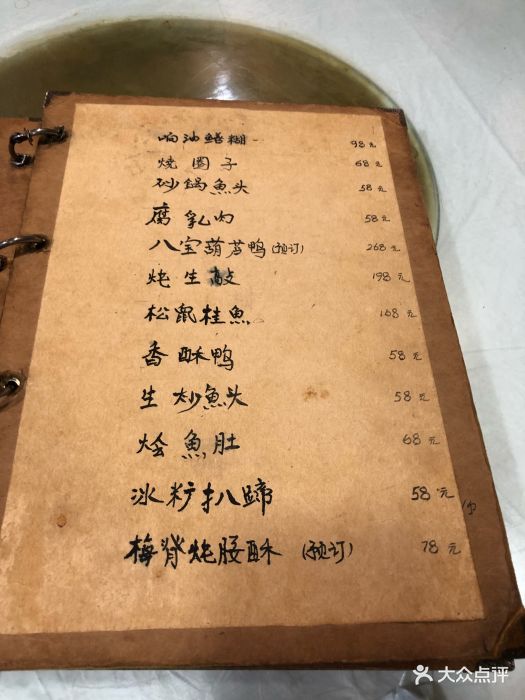 响油鳝糊 98元
烧圈子 68元
砂锅魚头 58元
腐乳肉 58元
八宝葫芦鸭(预订) 268元
炖生敲 198元
松鼠桂魚 168元
香酥鸭 58元
生炒魚头 58元
烩魚肚 68元
冰糖扒蹄 58元
梅脊炖腰酥 (预订) 78元
大众点评